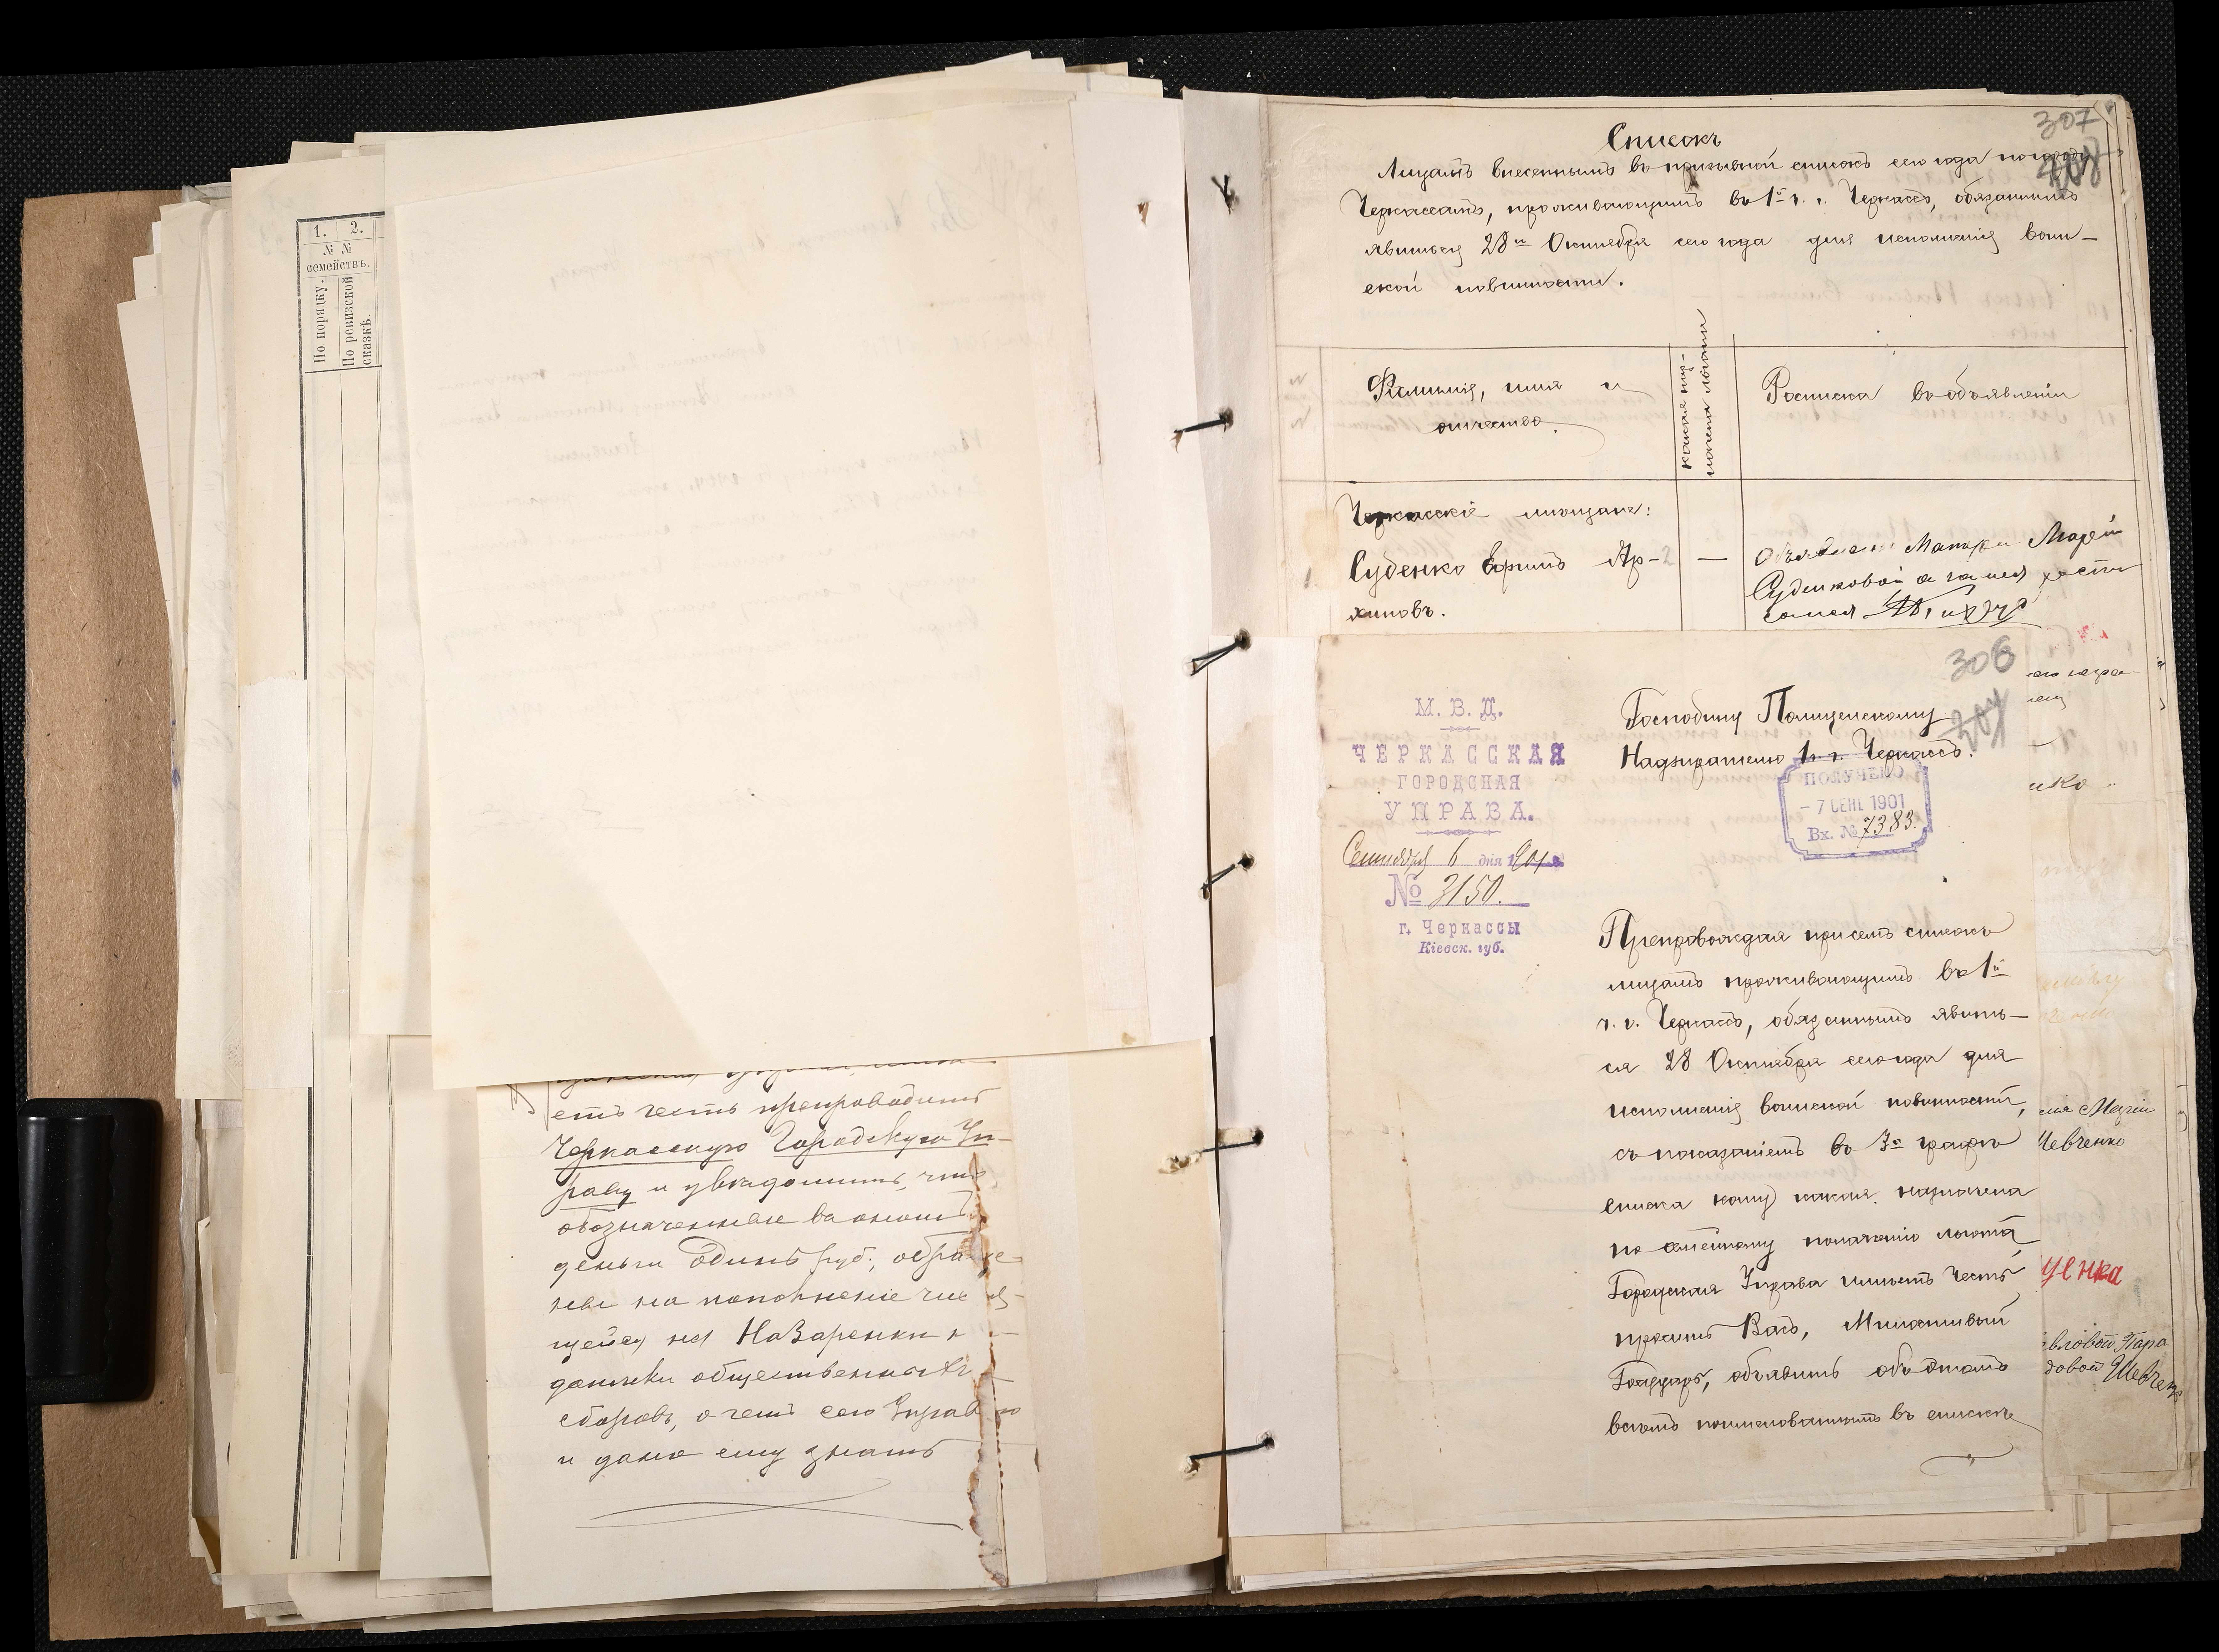 1. 2.
№ №
семействъ.
По порядку.
По ревизской сказкѣ.
етъ честь препроводить
Черкасскую Городскую Уп-
раву и увѣдомить, что
обозначенные въ ономъ
деньги одинъ руб., обра
на пополненіе чис
щейся на Назаренки
общественныхъ
сборовъ, о чемъ сего
и дано ему знать
307
Списокъ
Лицамъ внесеннымъ въ призывной списокъ сего года по городу
Черкассамъ, проживающимъ въ 1й ч. г. Черкассъ, обязаннымъ
явиться 28го Октября сего года для исполненія воин-
ской повинности.
№ №
Фамилія, имя и
отчество.
Какая наз-
начена льгота
Росписка въ объявленіи
Черкасскіе мѣщане:
1 Суденко Ефимъ Ар-
хиповъ.
—
Объявлено Матери Маріи
Суденковой а за нея
306
М. В. Д.
ЧЕРКАССКАЯ
ГОРОДСКАЯ
УПРАВА.
Сентября 6 дня 1901 г.
№ 3150.
г. Черкассы
Кіевск. губ.
Господину Полицейскому
Надзирателю 1 ч. г. Черкассъ.
ПОЛУЧЕНО
- 7 СЕН 1901
Вх. № 7383.
Препровождая при семъ списокъ
лицамъ проживающимъ въ 1й
ч. г. Черкассъ, обязаннымъ явить-
ся 28 Октября сего года для
исполненія воинской повинности,
съ показаніемъ въ 3й графѣ
списка кому какая назначена
по семейному положенію льгота,
Городская Управа имѣетъ честь
просить Васъ, Милостивый
Государь, объявить объ этомъ
всѣмъ поименованнымъ въ спискѣ
нко
Маріи
Шевченко
ценка
вловой Пара
довой Шевченк